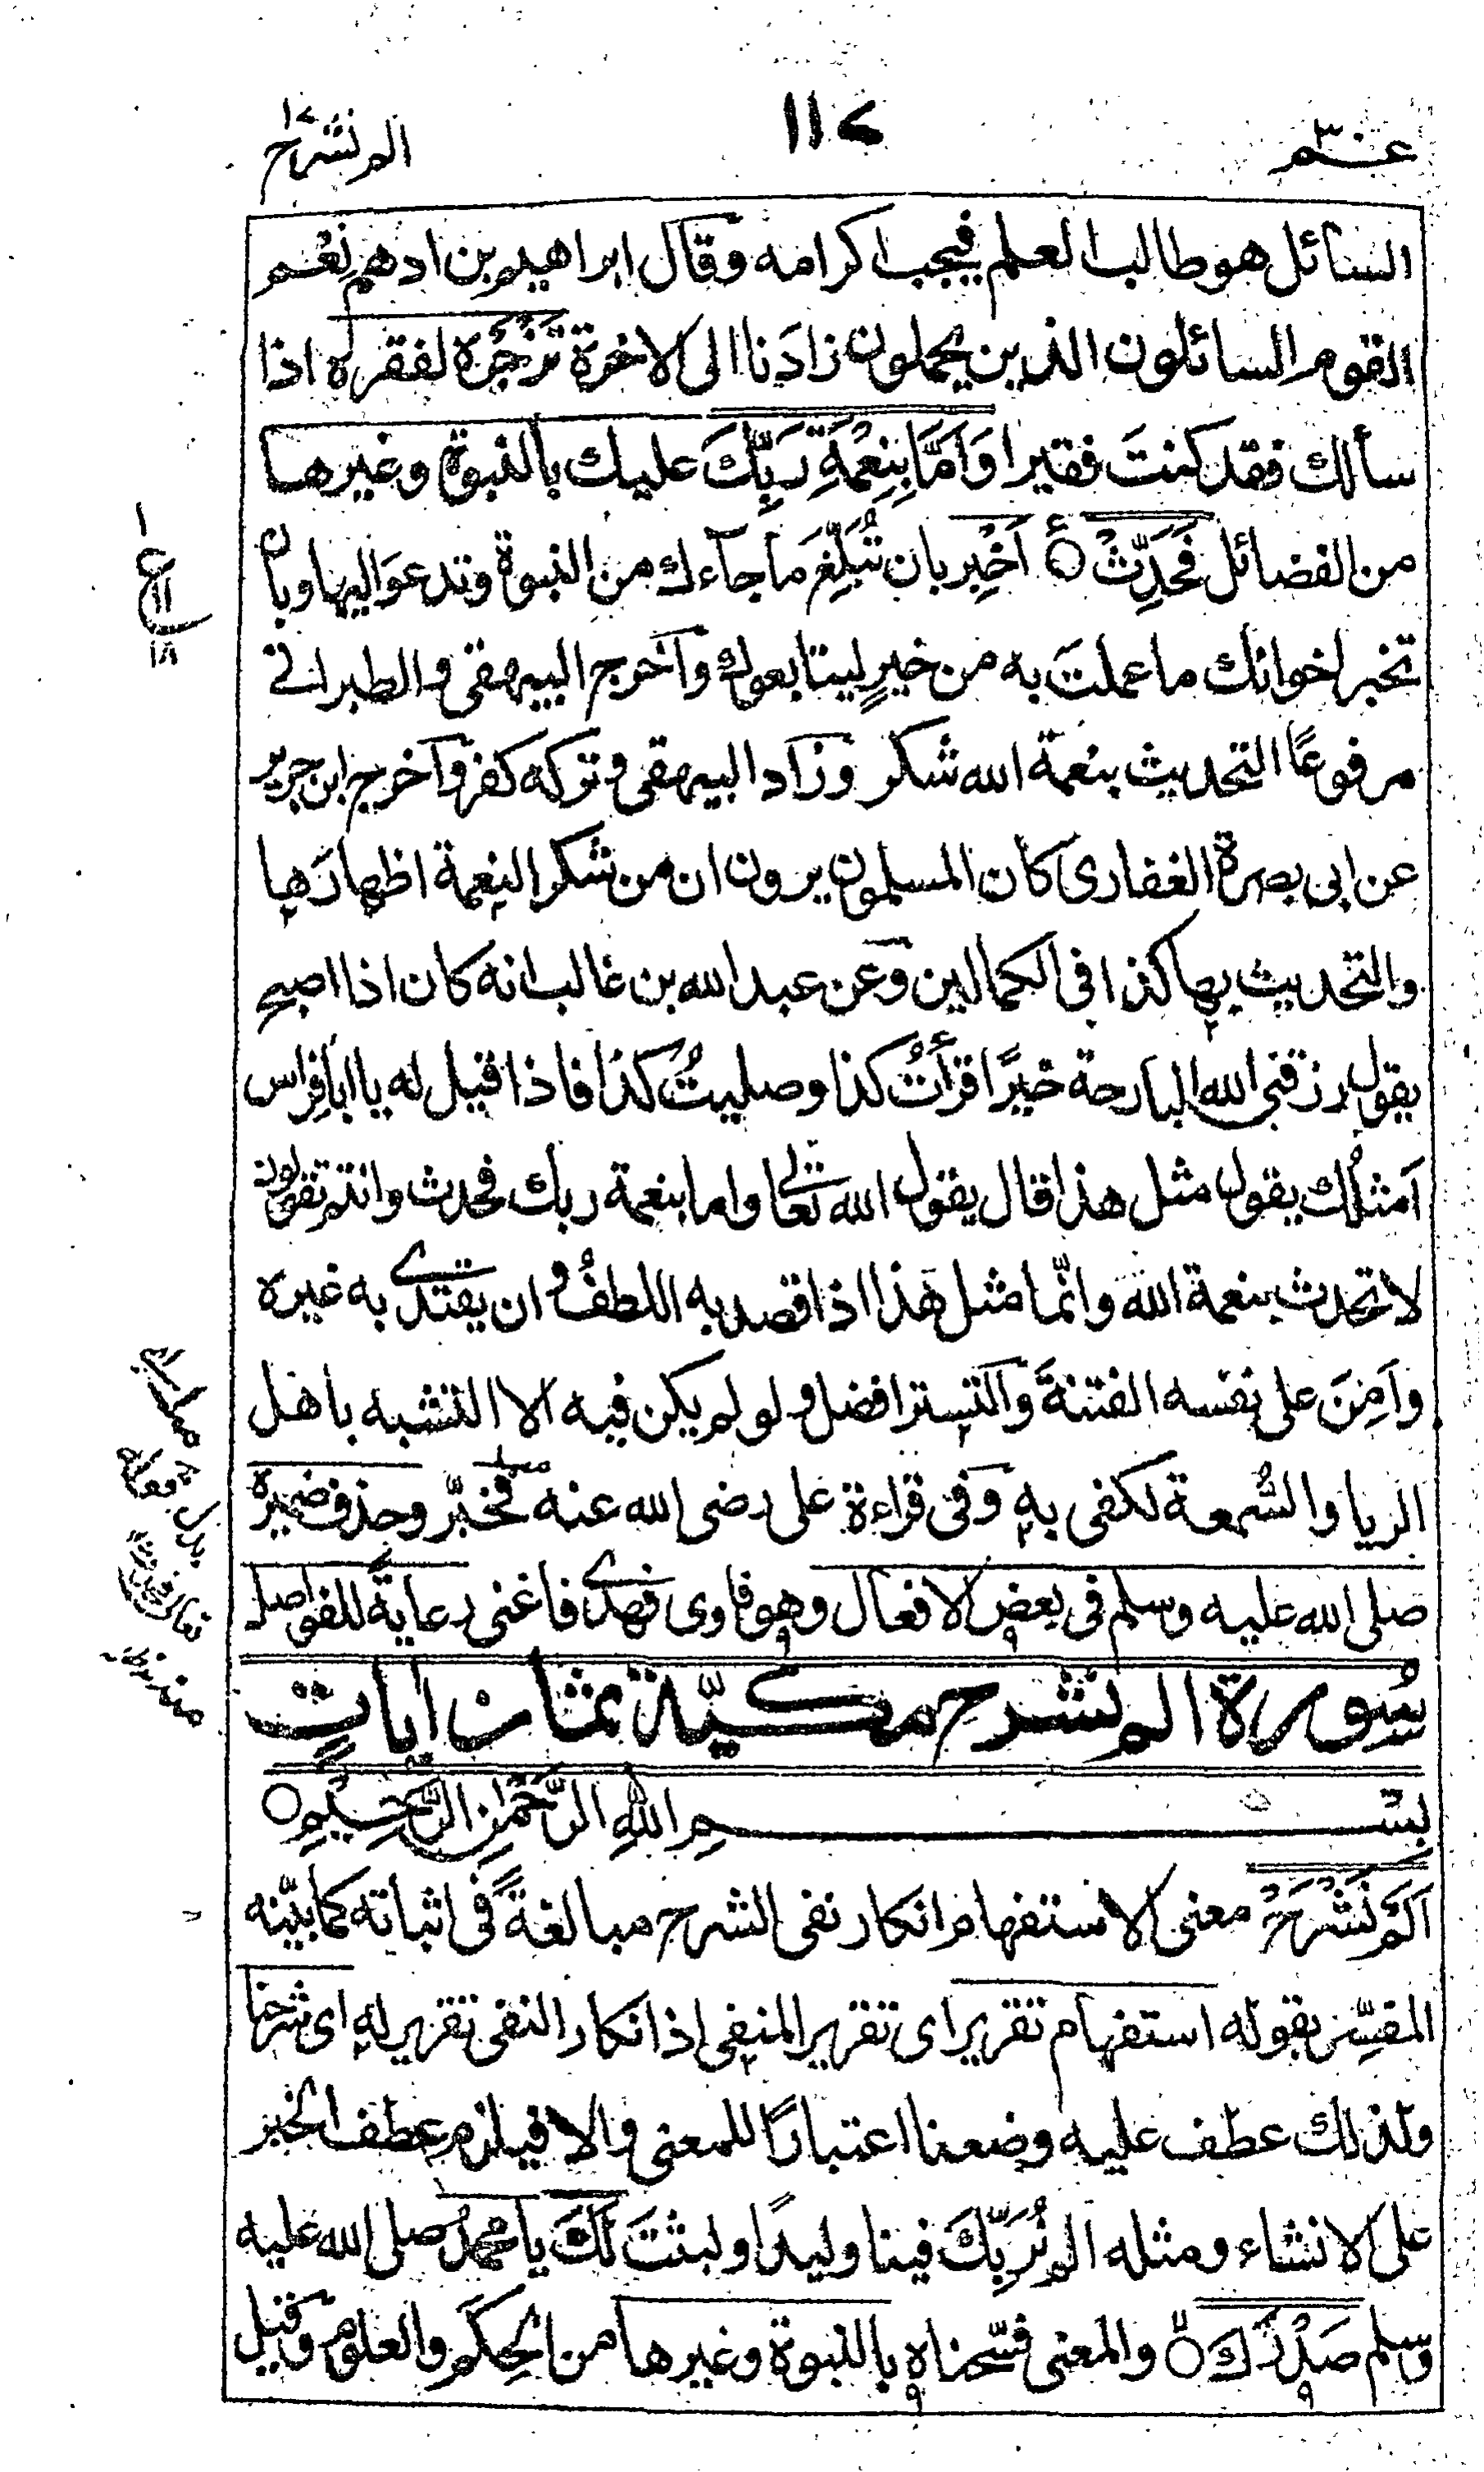 عـم ٣٠
١١٧
الم نشرح
السائل هو طالب العلم فيجب اكرامه وقال ابراهيم بن ادهم نِعْم
القوم السائلون الذين يحملون زادَنا الى الاخرة تَزْجُرْه لفقره اذا
سألك فقد كنتَ فقيرا وَاَمَّا بِنِعْمَةِ رَبِّكَ عليك بالنبوة وغيرها
من الفضائل فَحَدِّثْ ۝ اَخْبِر بان تُبَلِّغ ما جآءك من النبوة وتدعوَ اليها وبان
تخبر اخوانك ما عملتَ به من خيرٍ ليتابعوك وآخرج البيهقى والطبرانى
مرفوعًا التحديث بنعمة الله شكر وزاد البيهقى وتركه كفر وآخرج ابن جرير
عن ابى بصرة الغفارى كان المسلمون يرون ان من شكر النعمة اظهارَها
والتحديث بها كذا فى الكمالين وعن عبد الله بن غالب انه كان اذا اصبح
يقول رزقنى الله البارحة خيرًا قرأتُ كذا وصليتُ كذا فاذا قيل له يا ابا فِراس
اَمثلُك يقول مثل هذا قال يقول الله تعالى واما بنعمة ربك فحدث وانتم تقولون
لا تحدث بنعمة الله وانّما مثل هذا اذا قصد به اللطفُ وان يقتدى به غيره
وآمِنَ على نفسه الفتنةَ والتستر افضل ولو لم يكن فيه الا التشبه باهل
الريا والسُّمعة لكفى به وفى قراءة على رضى الله عنه فخبّر وحذف ضميره
صلى الله عليه وسلم فى بعض الافعال وهو فاوى فهدى فاغنى رعايةً للفواصل
سُورة الم نشرح مكيّة ثمان اياتٍ
بِسْمِ اللهِ الرَّحْمٰنِ الرَّحِيْمِ ۝
اَلَمْ نَشْرَحْ معنى الاستفهام انكار نفى الشرح مبالغةً فى اثباته كما بيّنه
المفسِّر بقوله استفهام تقرير اى تقرير المنفى اذ انكار النفى تقرير له اى شرحنا
ولذلك عطف عليه وضعنا اعتبارًا للمعنى والا فيلزم عطف الخبر
على الانشاء ومثله الم نُرَبِّكَ فينا وليدًا ولبثتَ لَكَ يا محمدُ صلى الله عليه
وسلم صَدْرَكَ ۝ والمعنى فسّحناه بالنبوة وغيرها من الحِكَم والعلوم وقيل